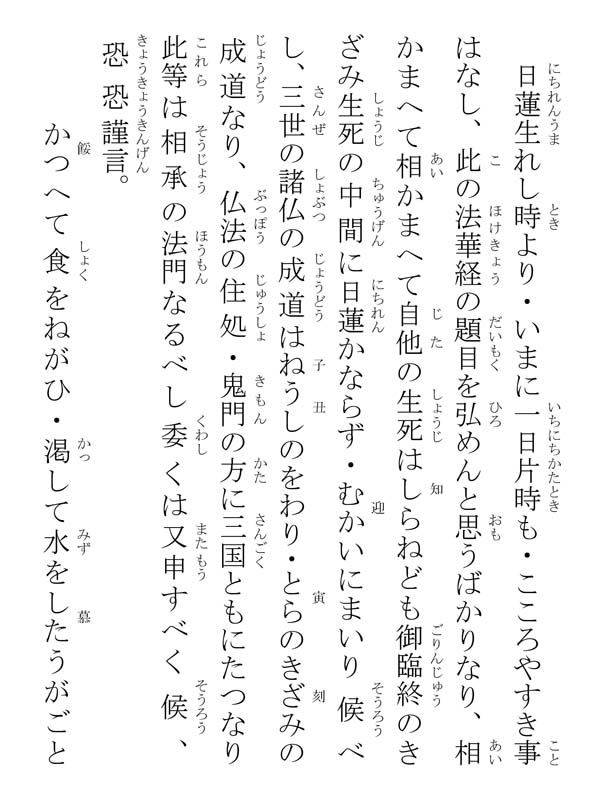 日蓮生れし時より・いまに一日片時も・こころやすき事
はなし、此の法華経の題目を弘めんと思うばかりなり、相
かまへて相かまへて自他の生死はしらねども御臨終のき
ざみ生死の中間に日蓮かならず・むかいにまいり候べ
し、三世の諸仏の成道はねうしのをわり・とらのきざみの
成道なり、仏法の住処・鬼門の方に三国ともにたつなり
此等は相承の法門なるべし委くは又申すべく候、
恐恐謹言。
かつへて食をねがひ・渇して水をしたうがごと